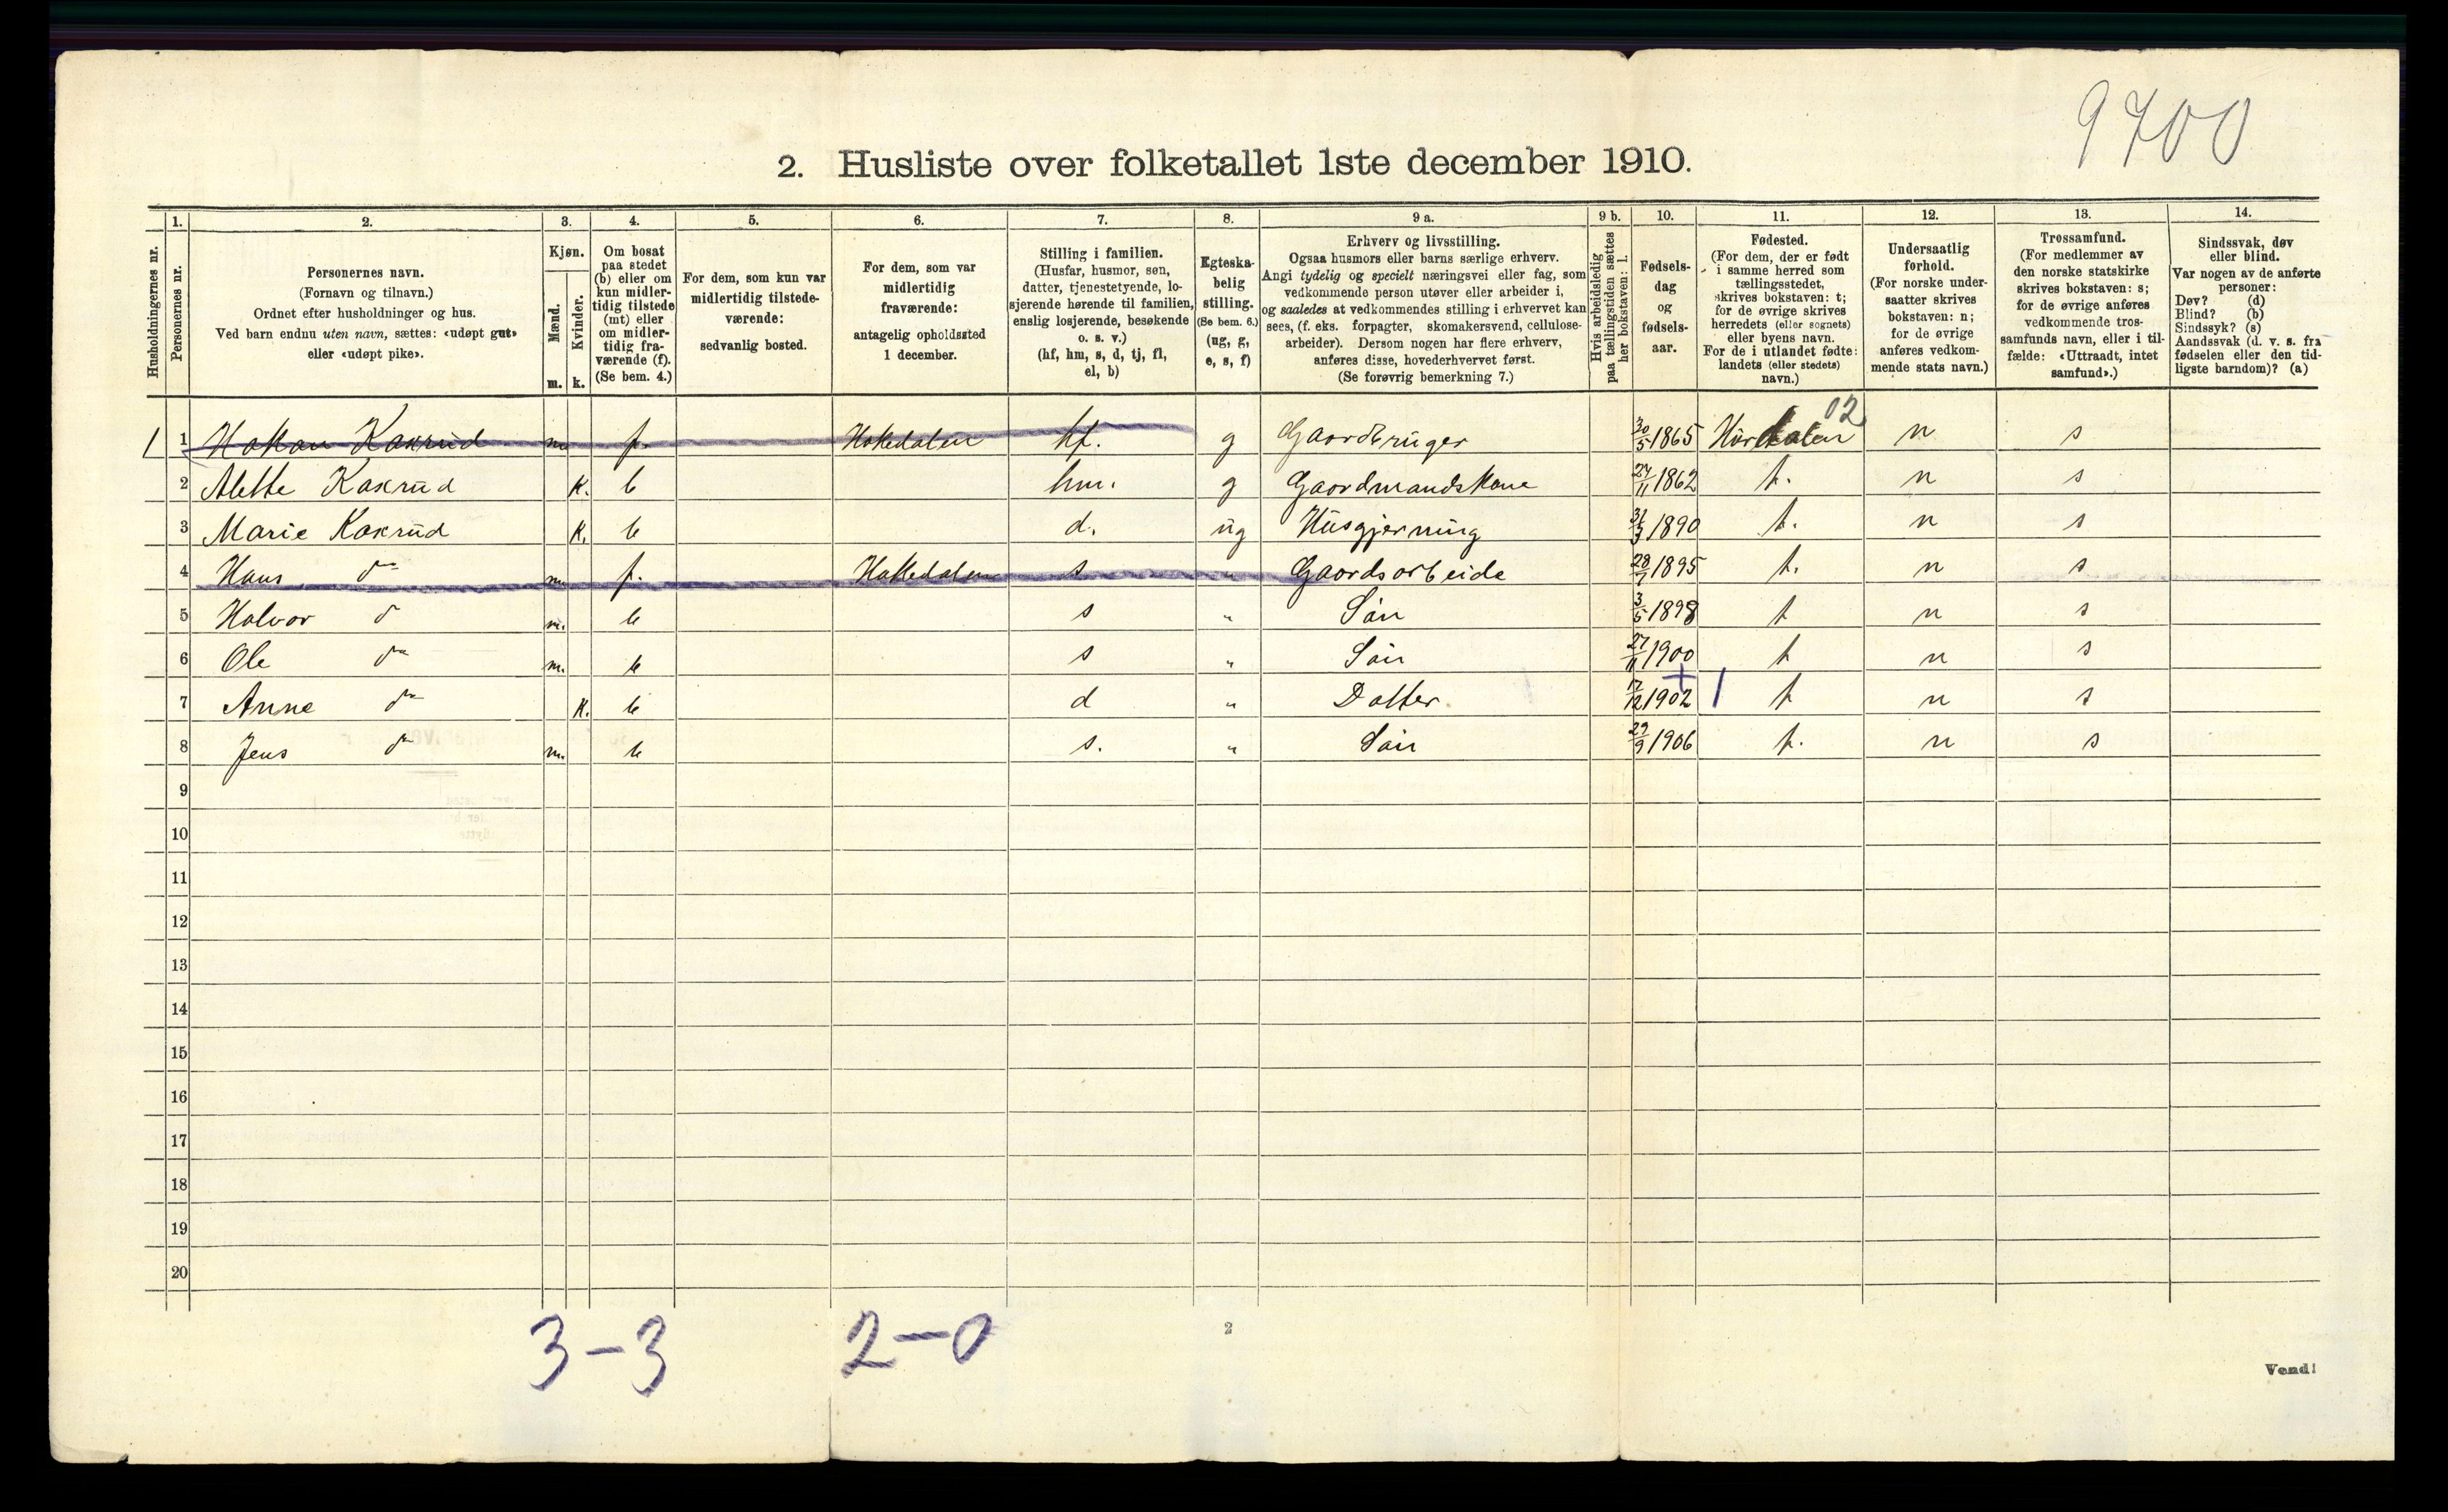 9700
2. Husliste over folketallet 1ste december 1910.
Husholdningernes nr.
1. Personernes nr.
2. Personernes navn. (Fornavn og tilnavn.) Ordnet efter husholdninger og hus. Ved barn endnu uten navn, sættes: «udøpt gut» eller «udøpt pike».
3. Kjøn. Mænd. m. Kvinder. k.
4. Om bosat paa stedet (b) eller om kun midlertidig tilstede (mt) eller om midlertidig fraværende (f). (Se bem. 4.)
5. For dem, som kun var midlertidig tilstedeværende: sedvanlig bosted.
6. For dem, som var midlertidig fraværende: antagelig opholdssted 1 december.
7. Stilling i familien. (Husfar, husmor, søn, datter, tjenestetyende, losjerende hørende til familien, enslig losjerende, besøkende o. s. v.) (hf, hm, s, d, tj, fl, el, b)
8. Egteskabelig stilling. (Se bem. 6.) (ug, g, e, s, f)
9 a. Erhverv og livsstilling. Ogsaa husmors eller barns særlige erhverv. Angi tydelig og specielt næringsvei eller fag, som vedkommende person utøver eller arbeider i, og saaledes at vedkommendes stilling i erhvervet kan sees, (f. eks. forpagter, skomakersvend, cellulosearbeider). Dersom nogen har flere erhverv, anføres disse, hovederhvervet først. (Se forøvrig bemerkning 7.)
9 b. Hvis arbeidsledig paa tællingstiden sættes her bokstaven: l.
10. Fødselsdag og fødselsaar.
11. Fødested. (For dem, der er født i samme herred som tællingsstedet, skrives bokstaven: t; for de øvrige skrives herredets (eller sognets) eller byens navn. For de i utlandet fødte: landets (eller stedets) navn.)
12. Undersaatlig forhold. (For norske undersaatter skrives bokstaven: n; for de øvrige anføres vedkommende stats navn.)
13. Trossamfund. (For medlemmer av den norske statskirke skrives bokstaven: s; for de øvrige anføres vedkommende trossamfunds navn, eller i tilfælde: «Uttraadt, intet samfund».)
14. Sindssvak, døv eller blind. Var nogen av de anførte personer: Døv? (d) Blind? (b) Sindssyk? (s) Aandssvak (d. v. s. fra fødselen eller den tidligste barndom)? (a)
02
1 1 Hakon Kaxrud m f. Hakedalen hf. g Gaardbruger 30/5 1865 Hurdalen n s
2 Alette Kaxrud K. b hm. g Gaardmandskone 24/11 1862 t. n s
3 Marie Kaxrud K. b d. ug Husgjerning 31/3 1890 t. n s
4 Hans do m f. Hakedalen s " Gaardsarbeide 28/7 1895 t. n s
5 Halvor do m. b s " Søn 3/5 1898 t n s
6 Ole do m. b s " Søn 27/11 1900 t n s
7 Anne do K. b d " Datter 17/12 1902 + 1 t n s
8 Jens do m. b s. " Søn 29/9 1906 t. n s
9
10
11
12
13
14
15
16
17
18
19
20
3 - 3 2 - 0
2
Vend!